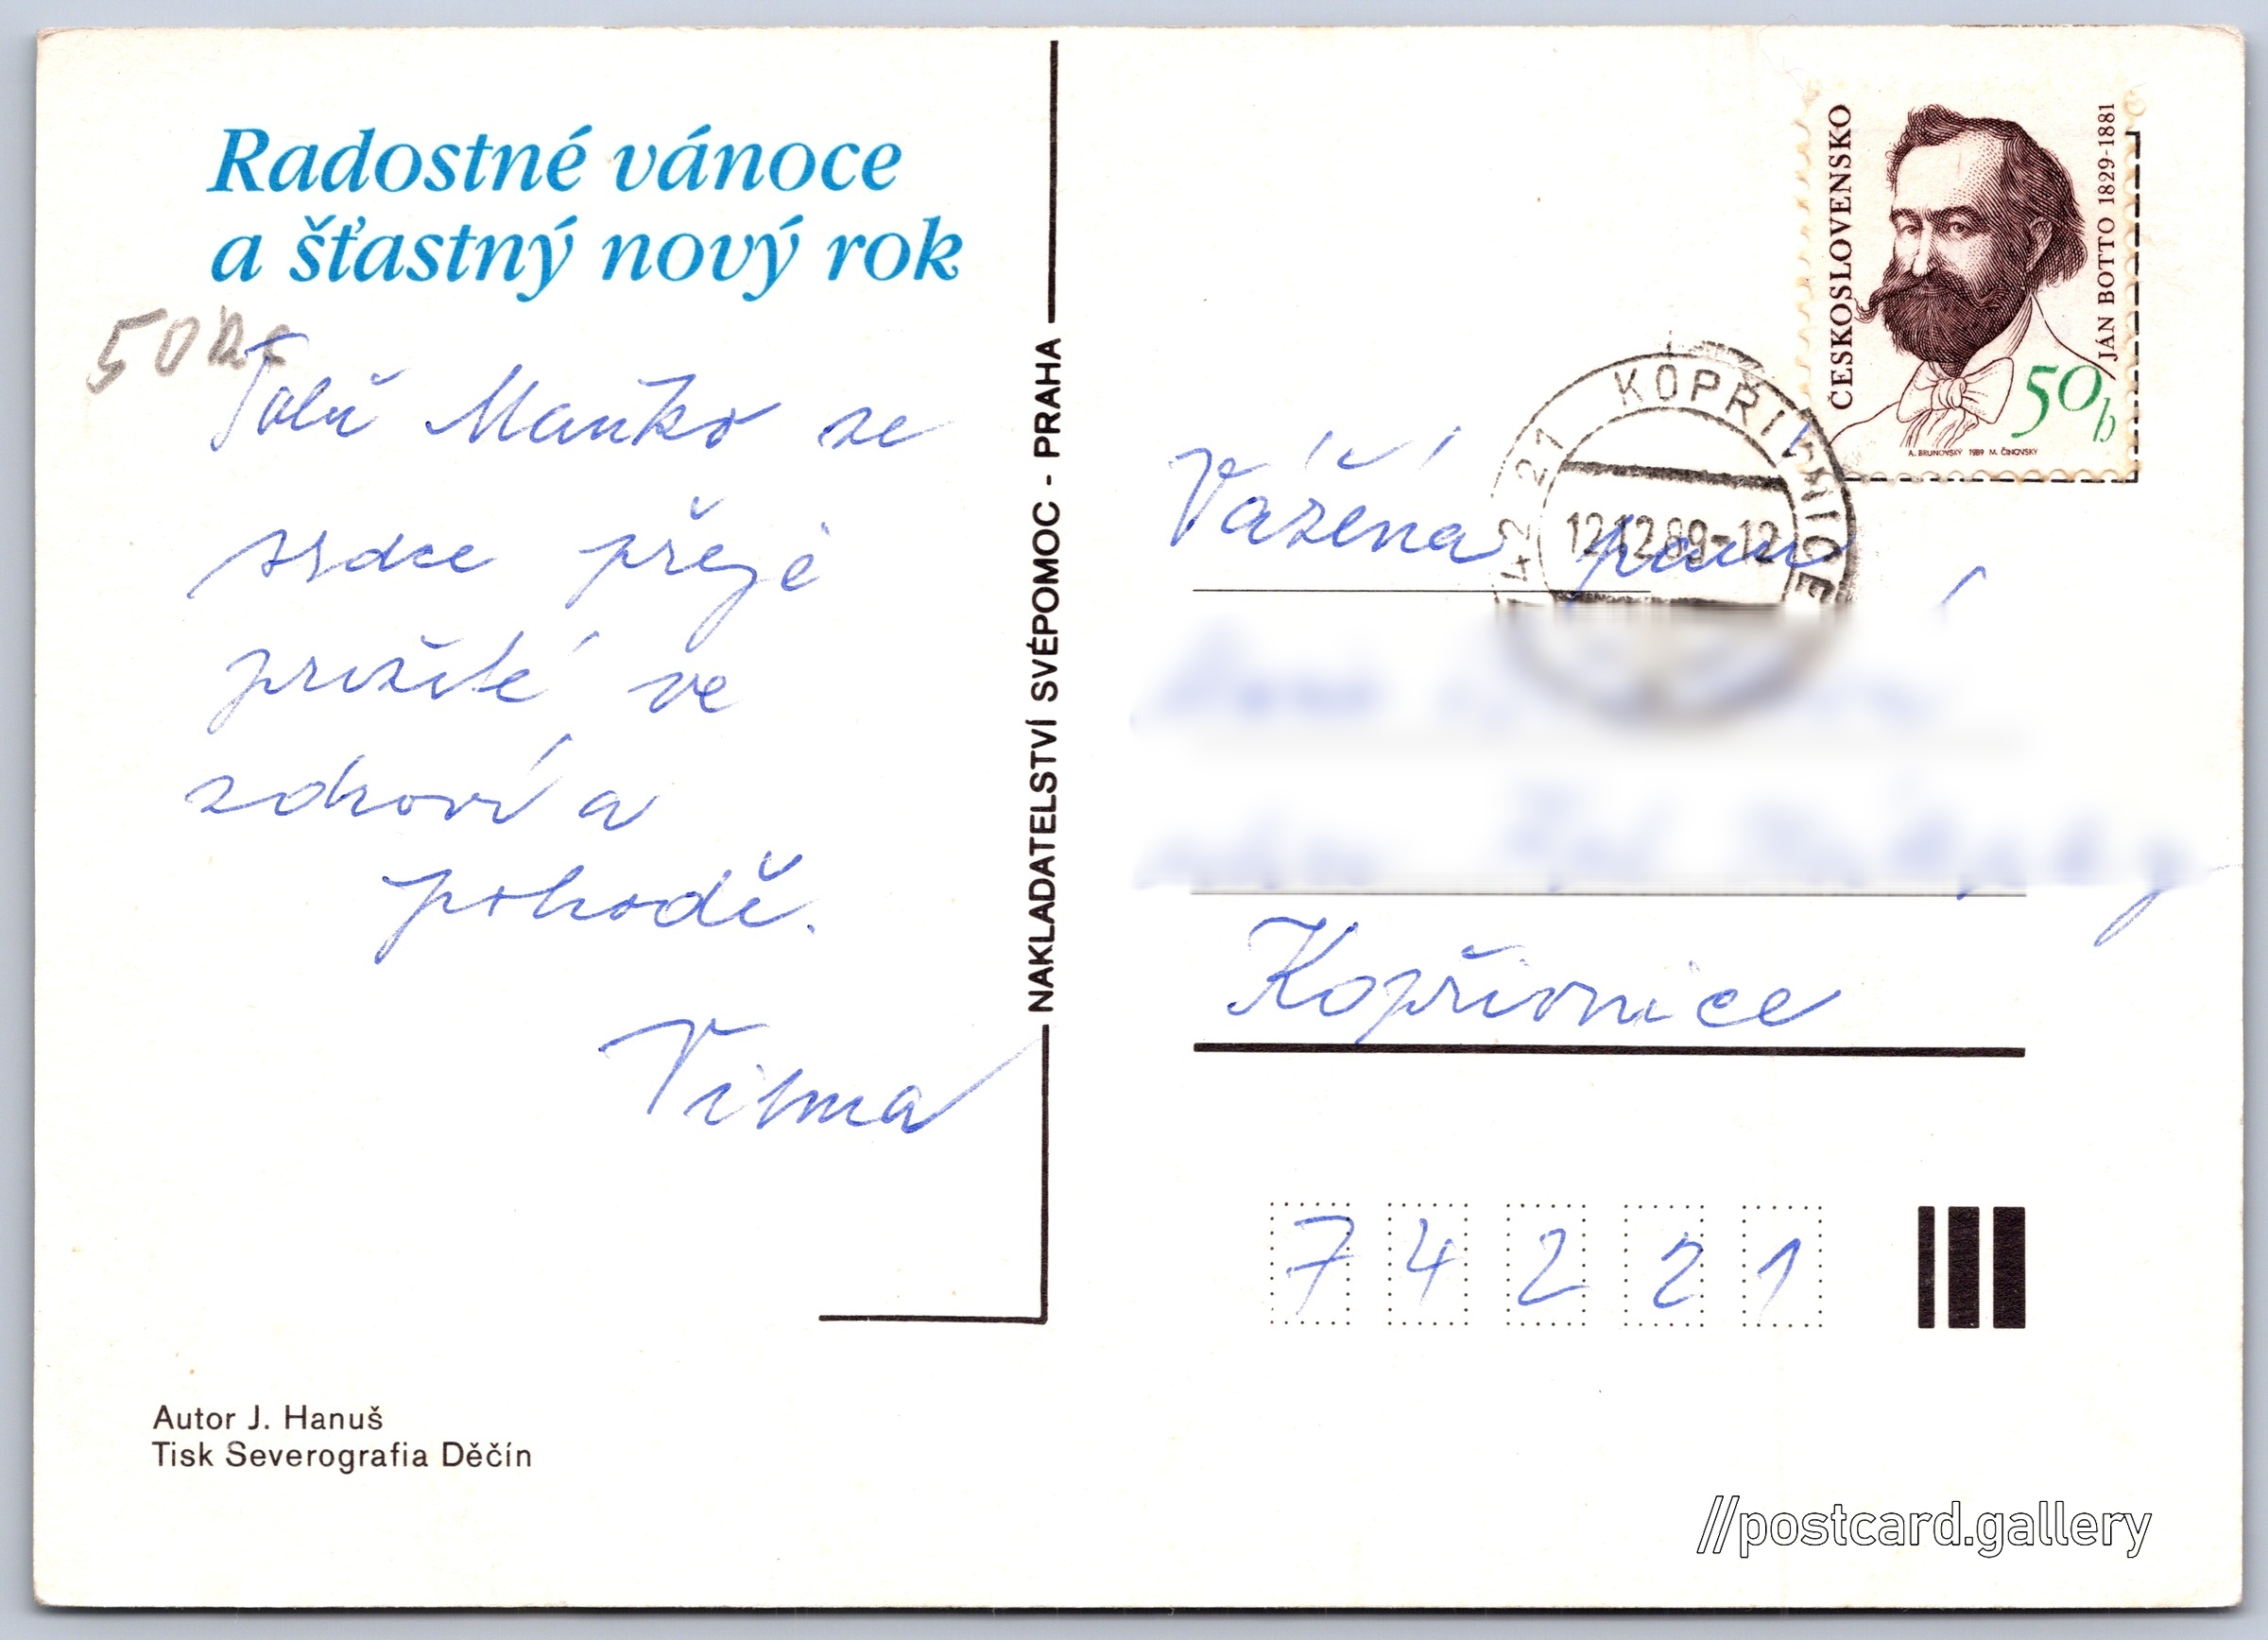 Radostné vánoce
a šťastný nový rok
50
se
srdce přeje
prožité ve
zdraví a
pohodě.
Vilma
Autor J. Hanuš
Tisk Severografia Děčín
NAKLADATELSTVÍ SVÉPOMOC - PRAHA
ČESKOSLOVENSKO
JÁN BOTTO 1829-1881
50h
A. BRUNOVSKÝ 1989 M. ČINOVSKÝ
742 21 KOPŘIVNICE
12.12.89-12
Vážená paní
Kopřivnice
7 4 2 2 1
//postcard.gallery